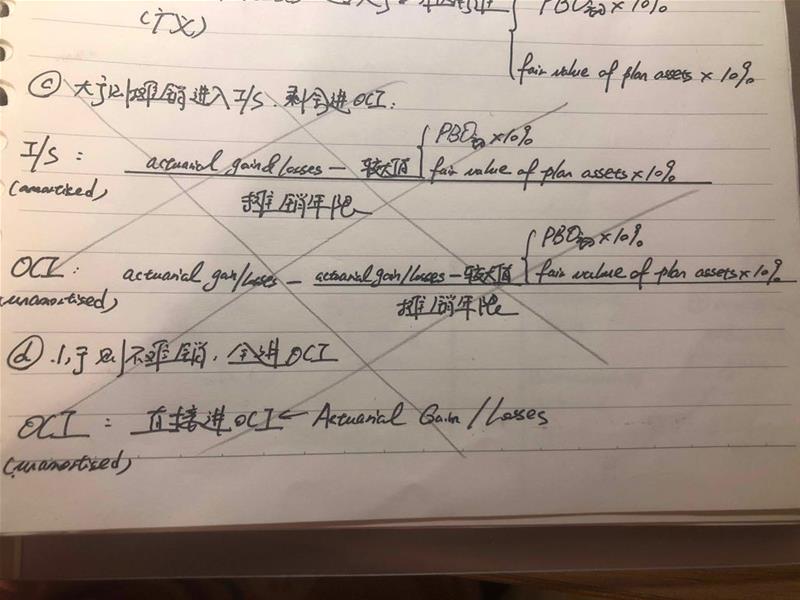 PBO初×10%
(TX)
fair value of plan assets × 10%
ⓒ 大于则摊销进入I/S,剩余进OCI:
PBO初×10%
I/S: actuarial gain&losses - 较大值 fair value of plan assets × 10%
(amortised) 摊销年限
PBO初×10%
OCI: actuarial gain/losses - actuarial gain/losses - 较大值 fair value of plan assets × 10%
(unamortised) 摊销年限
ⓓ 小于则不摊销,全进OCI
OCI: 直接进OCI ← Actuarial Gain/Losses
(unamortised)